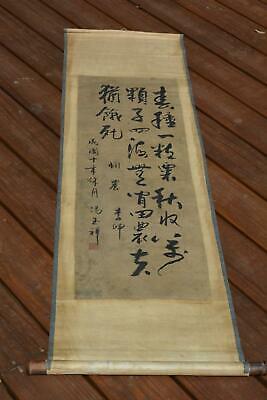 春種一粒粟秋收万
顆子四海無閒田農夫
猶餓死
憫農
李紳
民國十年月
馮玉祥